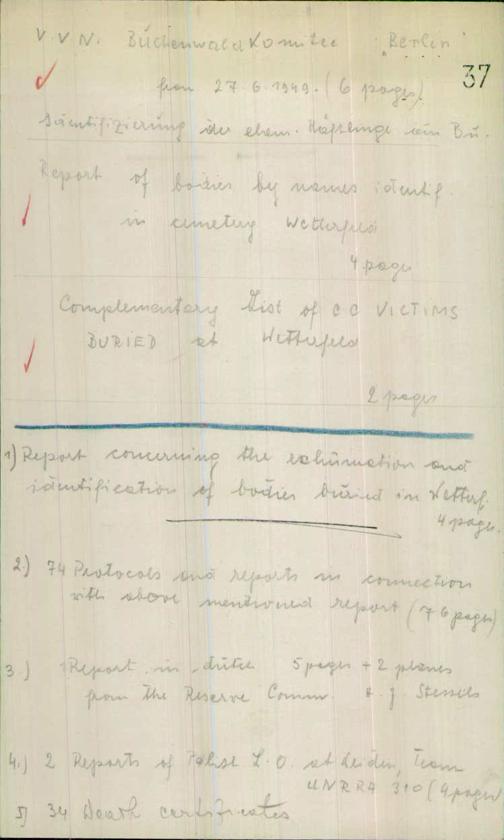 V.V.N. Buchenwald Komitee Berlin
37
from 27.6.1949. (6 pages)
Identifizierung der ehem. Häftlinge in Bu.
Report of bodies by names identif.
in cemetery Wetterfeld
4 pages
Complementary List of CC VICTIMS
BURIED at Wetterfeld
2 pages
1) Report concerning the exhumation and
identification of bodies buried in Wetterf.
4 pages.
2.) 74 Protocols and reports in connection
with above mentioned report (76 pages)
3.) 1 Report in dutch 5 pages + 2 planes
from the Reserve Comm. J. Stessels
4.) 2 Reports of L.O. at Leiden, Team
UNRRA 310 (4 pages)
5) 34 Death certificates